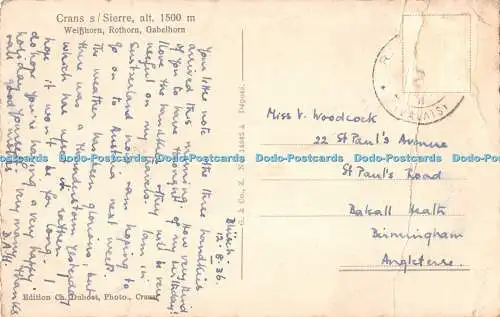 Crans s/Sierre, alt. 1500 m
Weißhorn, Rothorn, Gabelhorn
Blusch.
12.8.36.
Your little note & the three hankies
arrived this morning. How very kind
of you to have thought of my birthday!
I love the hankies & they will be very
useful on my travels. I am in
Switzerland now & am hoping to
go on to Austria next week.
The weather has been glorious, but
there was a thunderstorm yesterday
which has upset it rather. I
hope it won't be for long. I
do hope you're having a very happy
holiday yourself. Very many thanks
& all good wishes
D.A.G.
Miss V. Woodcock
22 St Paul's Avenue
St Paul's Road
Balsall Heath
Birmingham
Angleterre.
Edition Ch. Dubost, Photo., Crans
Dodo-Postcards Dodo-Postcards Dodo-Postcards
Dodo-Postcards Dodo-Postcards Dodo-Postcards
Dodo-Postcards Dodo-Postcards Dodo-Postcards